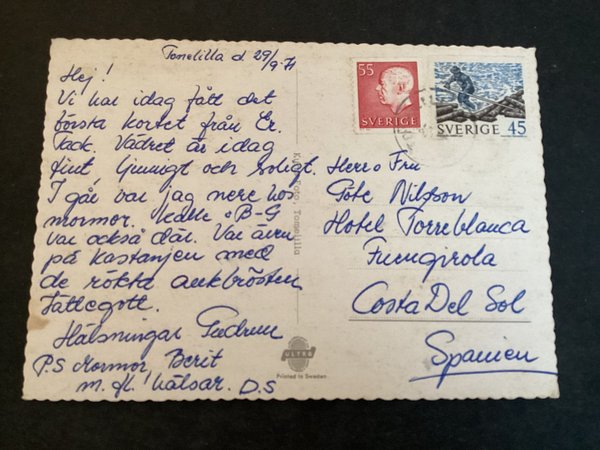 Tomelilla d 29/9-71
Hej!
Vi har idag fått det
första kortet från Er.
Tack. Vädret är idag
fint, ljumigt och soligt.
I går var jag nere hos
mormor. Kalle o B-G
var också där. Var även
på Kastanjen med
de rökta ankbrösten
Jättegott.
Hälsningar Gudrun
P.S Mormor, Berit
m. fl. hälsar. D.S
55
SVERIGE
SVERIGE 45
Herr o Fru
Göte Nilsson
Hotel Torreblanca
Fuengirola
Costa Del Sol
Spanien
Foto, Tomelilla
ULTRA
Printed in Sweden